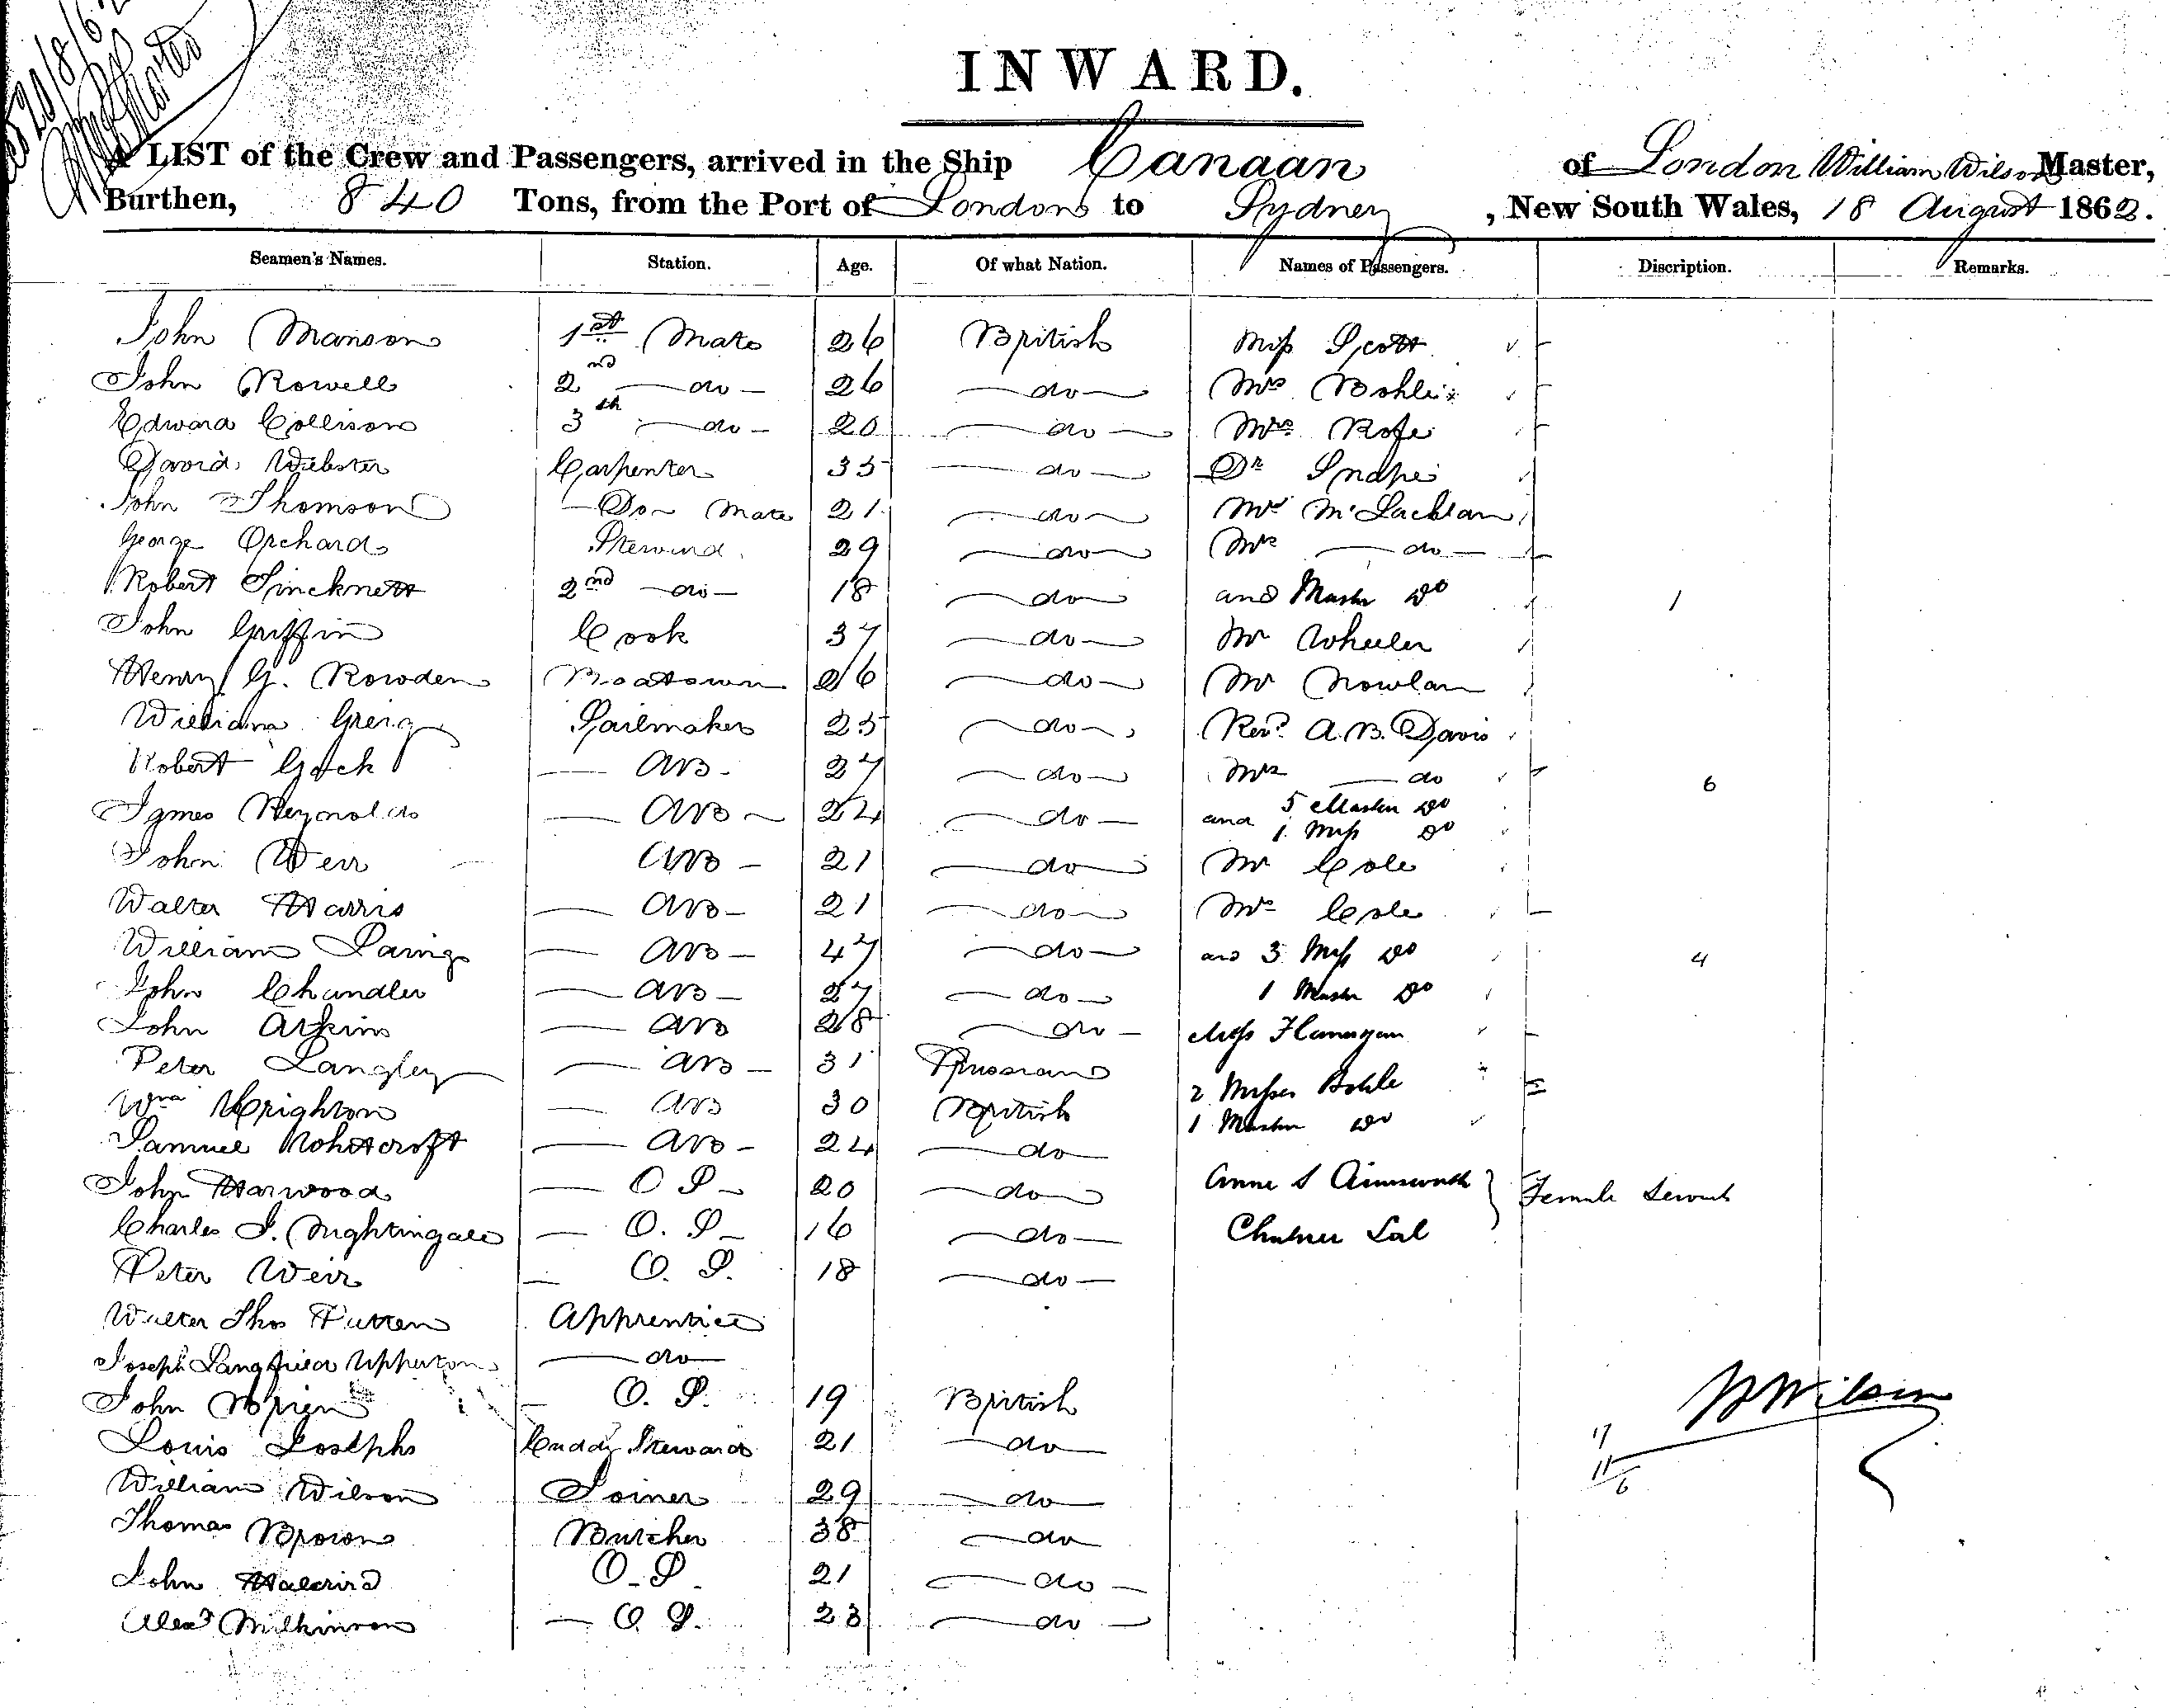 20/8/62
INWARD.
A LIST of the Crew and Passengers, arrived in the Ship Canaan of London William Wilson Master,
Burthen, 840 Tons, from the Port of London to Sydney, New South Wales, 18 August 1862.
Seamen's Names. Station. Age. Of what Nation. Names of Passengers. Discription. Remarks.
John Manson 1st Mate 26 British Miss Scott
John Rowell 2nd do 26 do Mrs
Edward Collison 3th do 20 do Mrs Rofe
David Webster Carpenter 35 do Dr Snape
John Thomson Do Mate 21 do Mr McLachlan
George Orchard Steward 29 do Mrs do
Robert Tincknett 2nd do 18 do and Master Do 1
John Griffin Cook 37 do Mr Wheeler
Henry G. Rowden Boatswn 26 do Mr Nowlan
William Greig Sailmaker 25 do Revd. A. B. Davis
Robert Gock AB 27 do Mrs do 6
James Reynolds AB 24 do and 5 Master Do
1 Miss Do
John Weir AB 21 do Mr Cole
Walter Harris AB 21 do Mrs Cole
William Laing AB 47 do and 3 Miss Do 4
John Chandler AB 27 do 1 Master Do
John Askins AB 28 do Miss Flanagan
Peter Langley AB 31 Prussian
2 Misses Bohle
Wm Krighton AB 30 British
1 Master Do
Samuel AB 24 do
John Harwood O S 20 do Anne S Ainsworth } Female Servants
Charles J. Nightingale O. S 16 do
Peter Weir O. S. 18 do
Walter Thos Apprentice
Joseph Langfield Upperton do
John Brien O. S. 19 British W Wilson
Louis Josephs Cuddy Steward 21 do 17
William Wilson Joiner 29 do 11
6
Thomas Brown Butcher 38 do
John O. S 21 do
Alexr Wilkinson O. S. 23 do